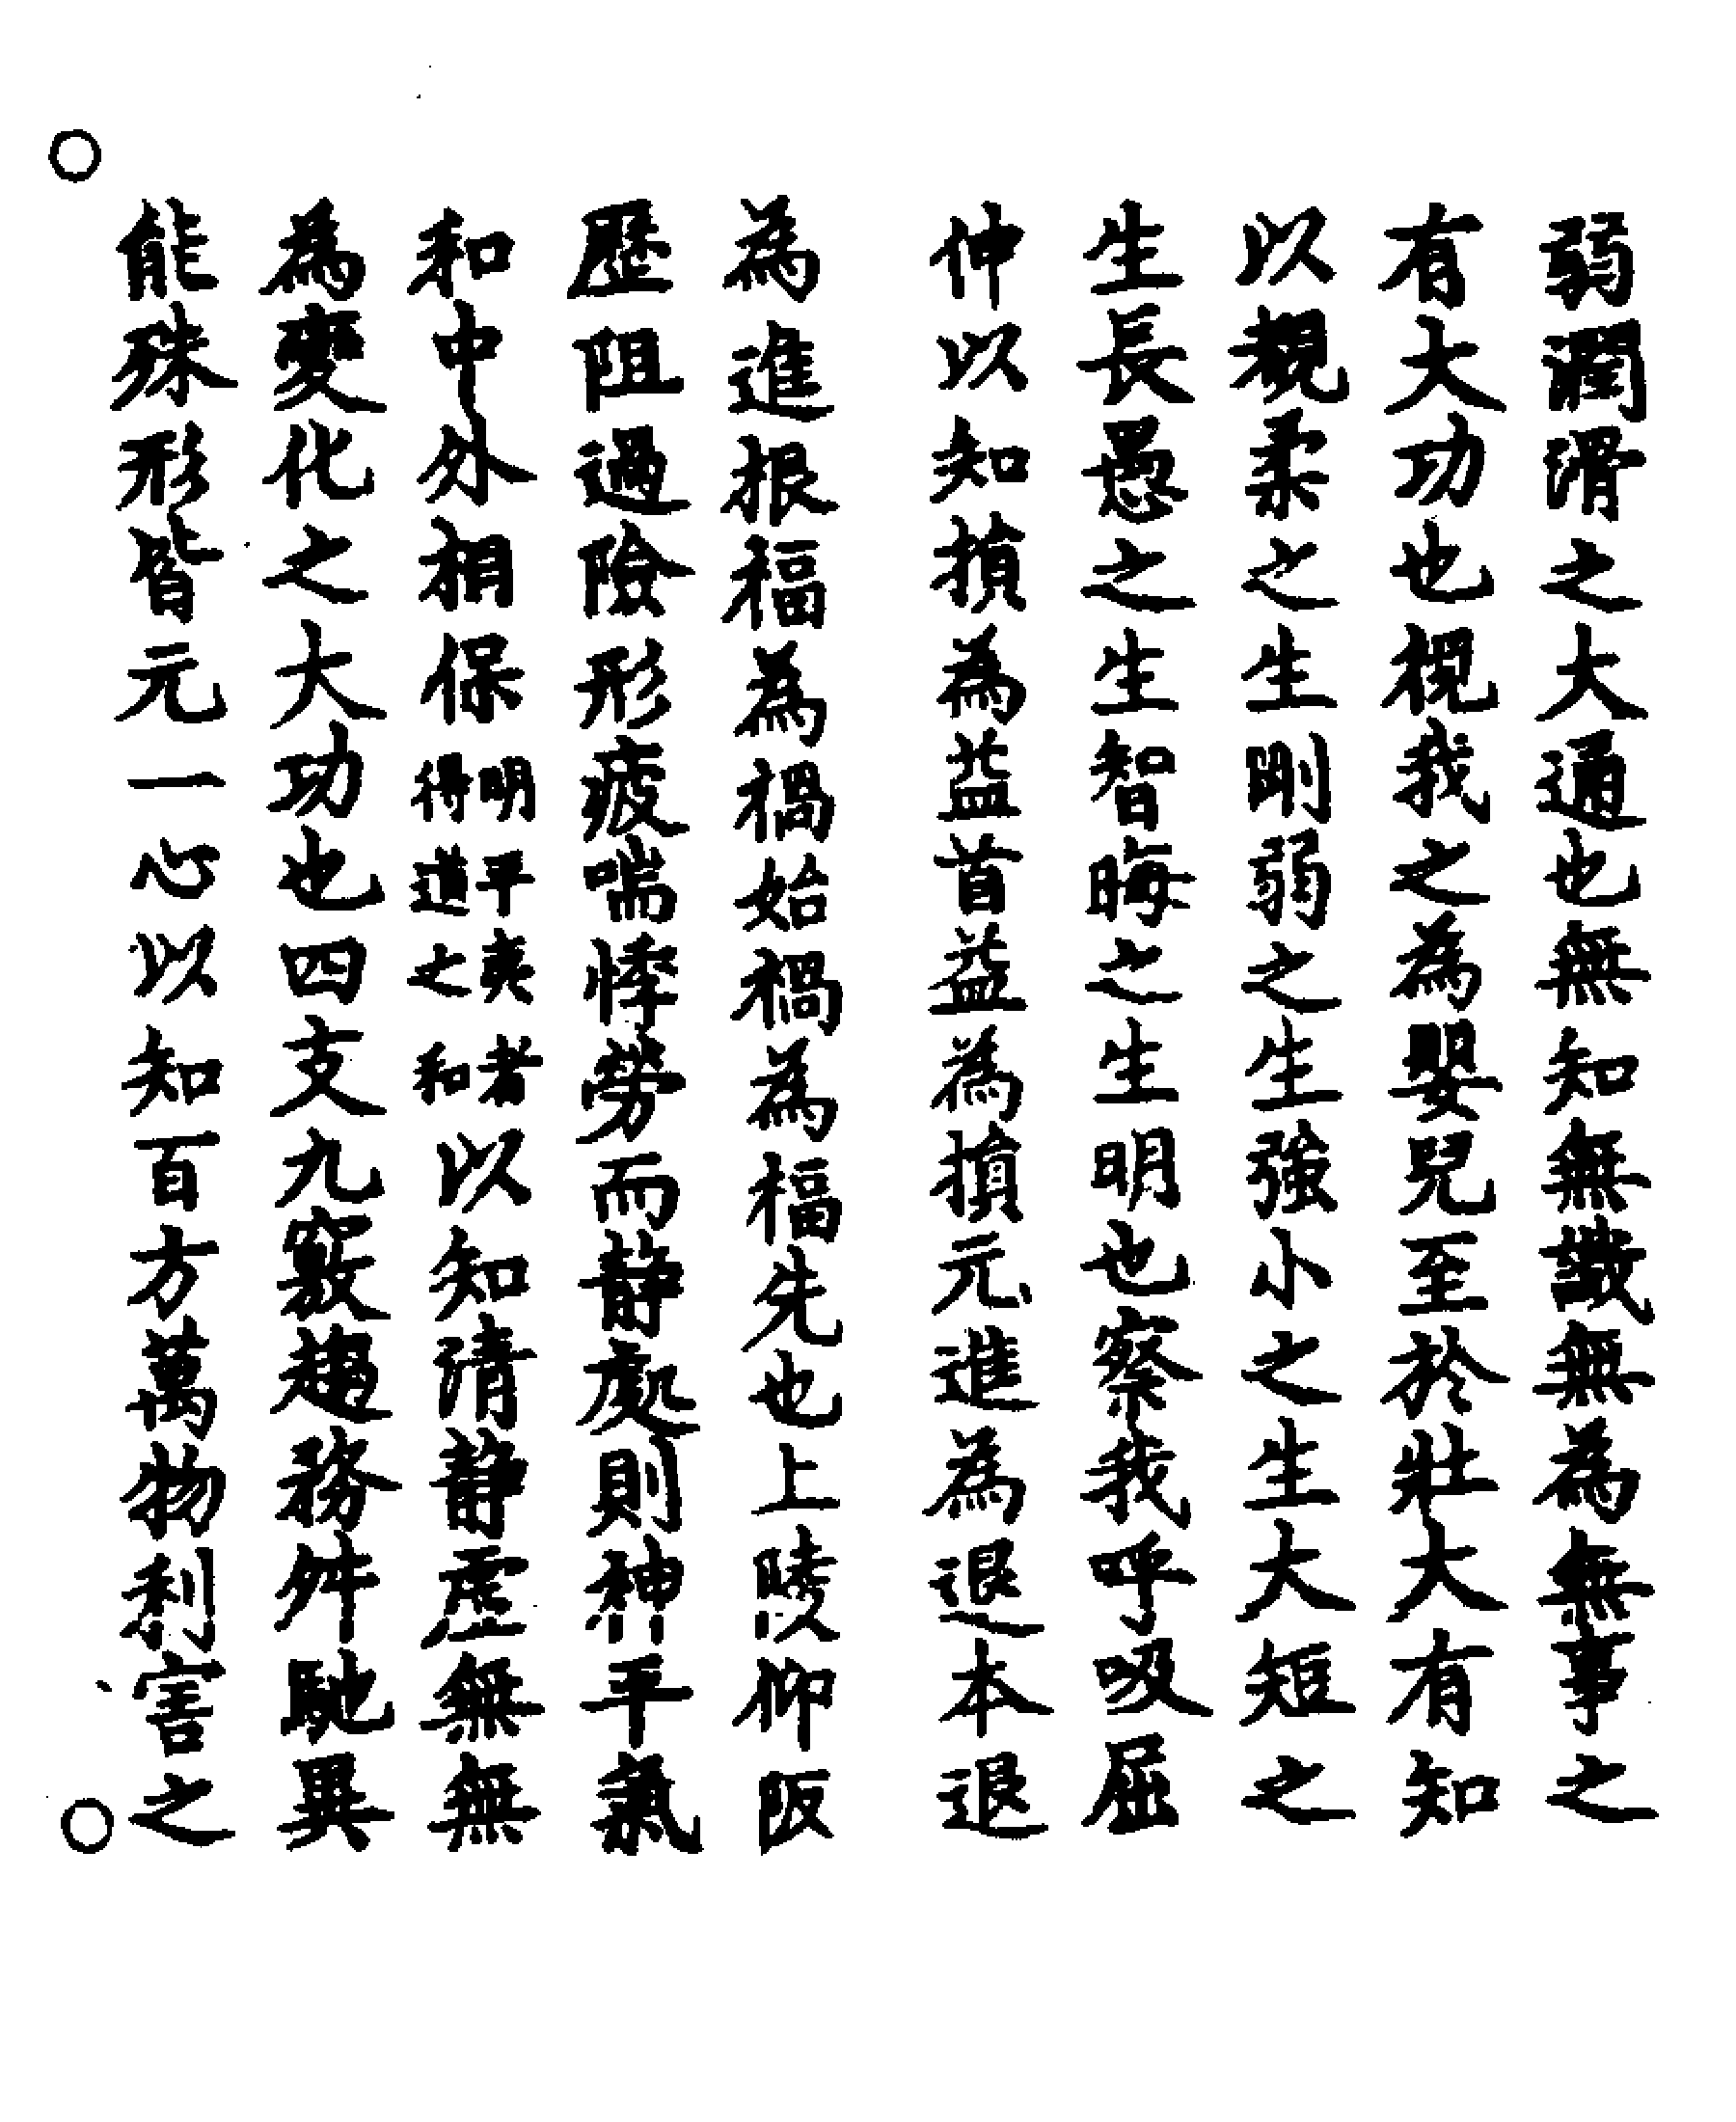 弱潤滑之大通也無知無識無為無事之
有大功也視我之為嬰兒至於壯大有知
以觀柔之生剛弱之生強小之生大短之
生長愚之生智晦之生明也察我呼吸屈
伸以知損為益首益為損元進為退本退
為進根福為禍始禍為福先也上陵仰阪
歷阻過險形疲喘悸勞而静處則神平氣
和中外相保明平夷者得道之和以知清静虛無無
為變化之大功也四支九竅趨務舛馳異
能殊形皆元一心以知百方萬物利害之